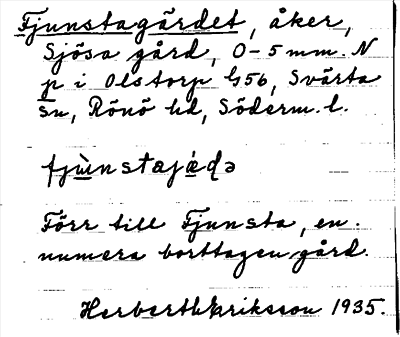 Fjunstagärdet, åker,
Sjösa gård, 0-5 mm. N
p i Olstorp G56, Svärta
sn, Rönö hd, Söderm. l.
fjùnstajæ̀ḍə
Förr till Fjunsta, en
numera borttagen gård.
Herbert Eriksson 1935.